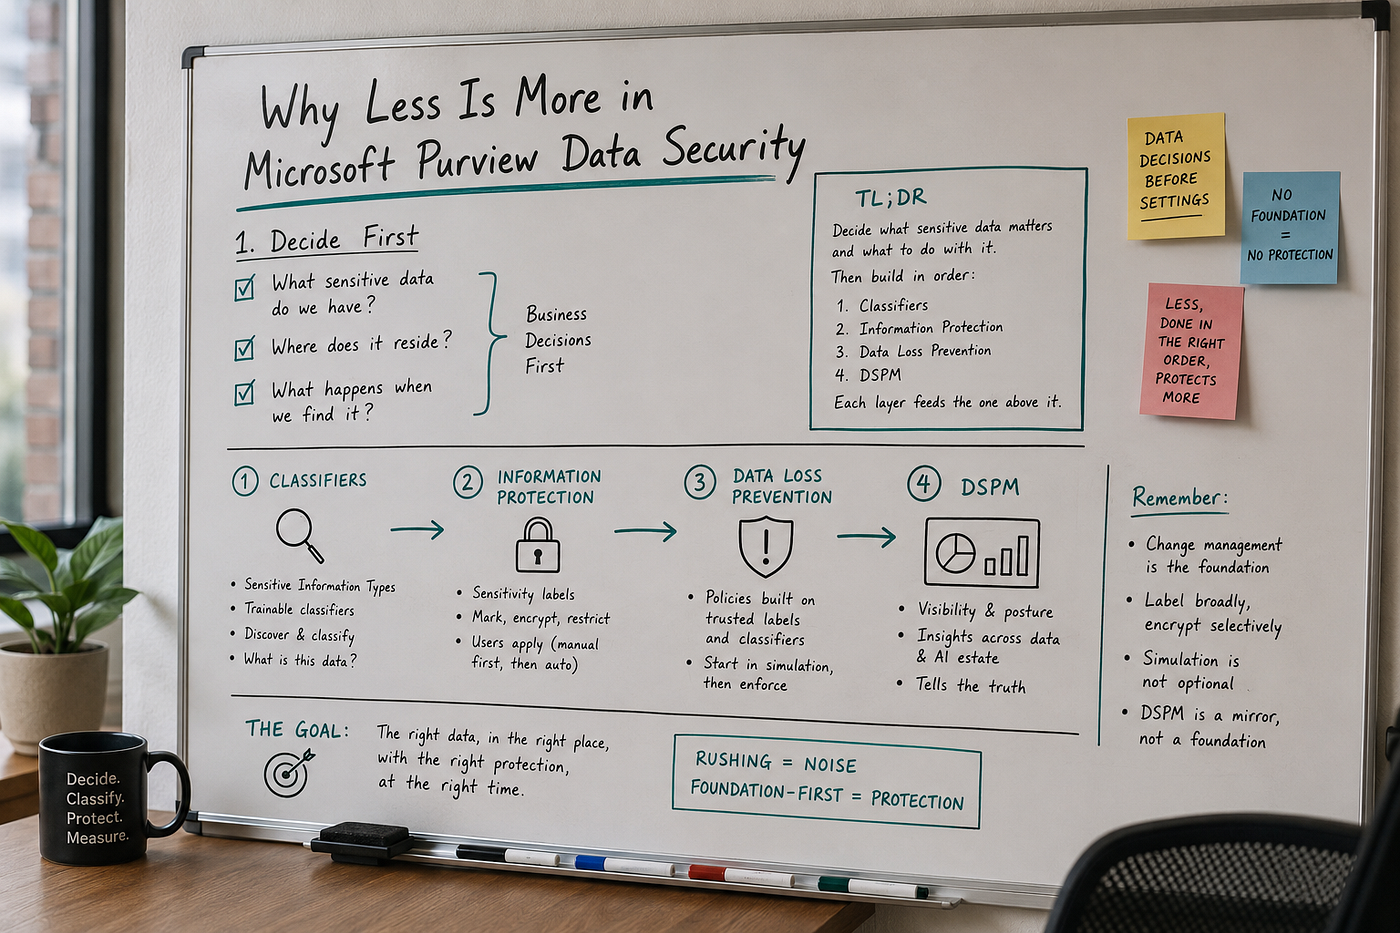 Why Less Is More in
Microsoft Purview Data Security
1. Decide First
What sensitive data
do we have?
Where does it reside?
What happens when
we find it?
Business
Decisions
First
TL;DR
Decide what sensitive data matters
and what to do with it.
Then build in order:
1. Classifiers
2. Information Protection
3. Data Loss Prevention
4. DSPM
Each layer feeds the one above it.
DATA
DECISIONS
BEFORE
SETTINGS
NO
FOUNDATION
=
NO PROTECTION
LESS,
DONE IN
THE RIGHT
ORDER,
PROTECTS
MORE
1 CLASSIFIERS
• Sensitive Information Types
• Trainable classifiers
• Discover & classify
• What is this data?
2 INFORMATION
PROTECTION
• Sensitivity labels
• Mark, encrypt, restrict
• Users apply (manual
first, then auto)
3 DATA LOSS
PREVENTION
• Policies built on
trusted labels
and classifiers
• Start in simulation,
then enforce
4 DSPM
• Visibility & posture
• Insights across data
& AI estate
• Tells the truth
Remember:
• Change management
is the foundation
• Label broadly,
encrypt selectively
• Simulation is
not optional
• DSPM is a mirror,
not a foundation
THE GOAL:
The right data, in the right place,
with the right protection,
at the right time.
RUSHING = NOISE
FOUNDATION-FIRST = PROTECTION
Decide.
Classify.
Protect.
Measure.